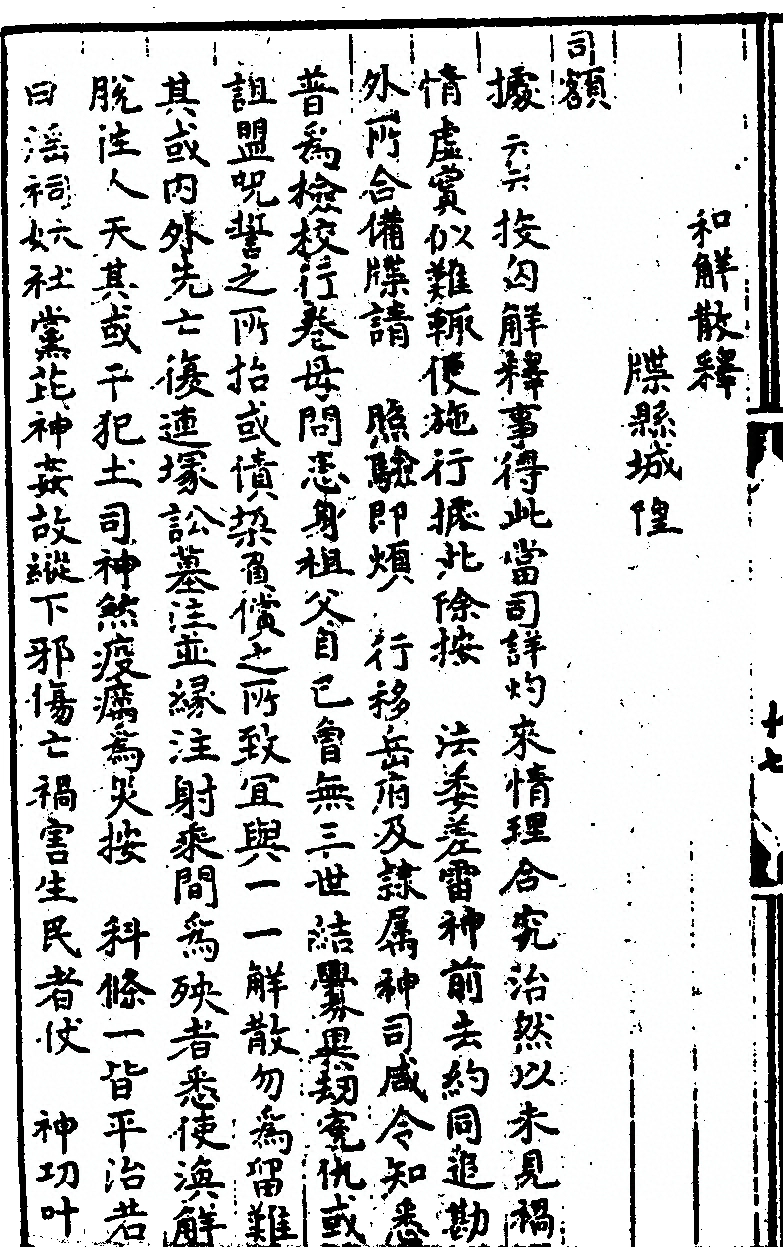 和解散釋
牒縣城隍
司額
據 厶厶 按囟解釋事得此當司詳灼來情理合究治然以未見禍
情虛實似難輒便施行據此除按 法委差雷神前去約同追勘
外所合備牒請 照驗即煩 行移岳府及隷属神司咸令知悉
普為檢校行卷毋問患身祖父自己曾無三世結舋累劫寃仇或
詛盟呪誓之所招或債染負償之所致宜與一一解散勿為留難
其或内外先亡復連塚訟墓注並緣注射乘間為殃者悉使渙解
脫往人天其或干犯土司神煞疫癘為災按 科條一皆平治若
曰滛祠妖社黨芘神姦故縱下邪傷亡禍害生民者伏 神功叶
十七